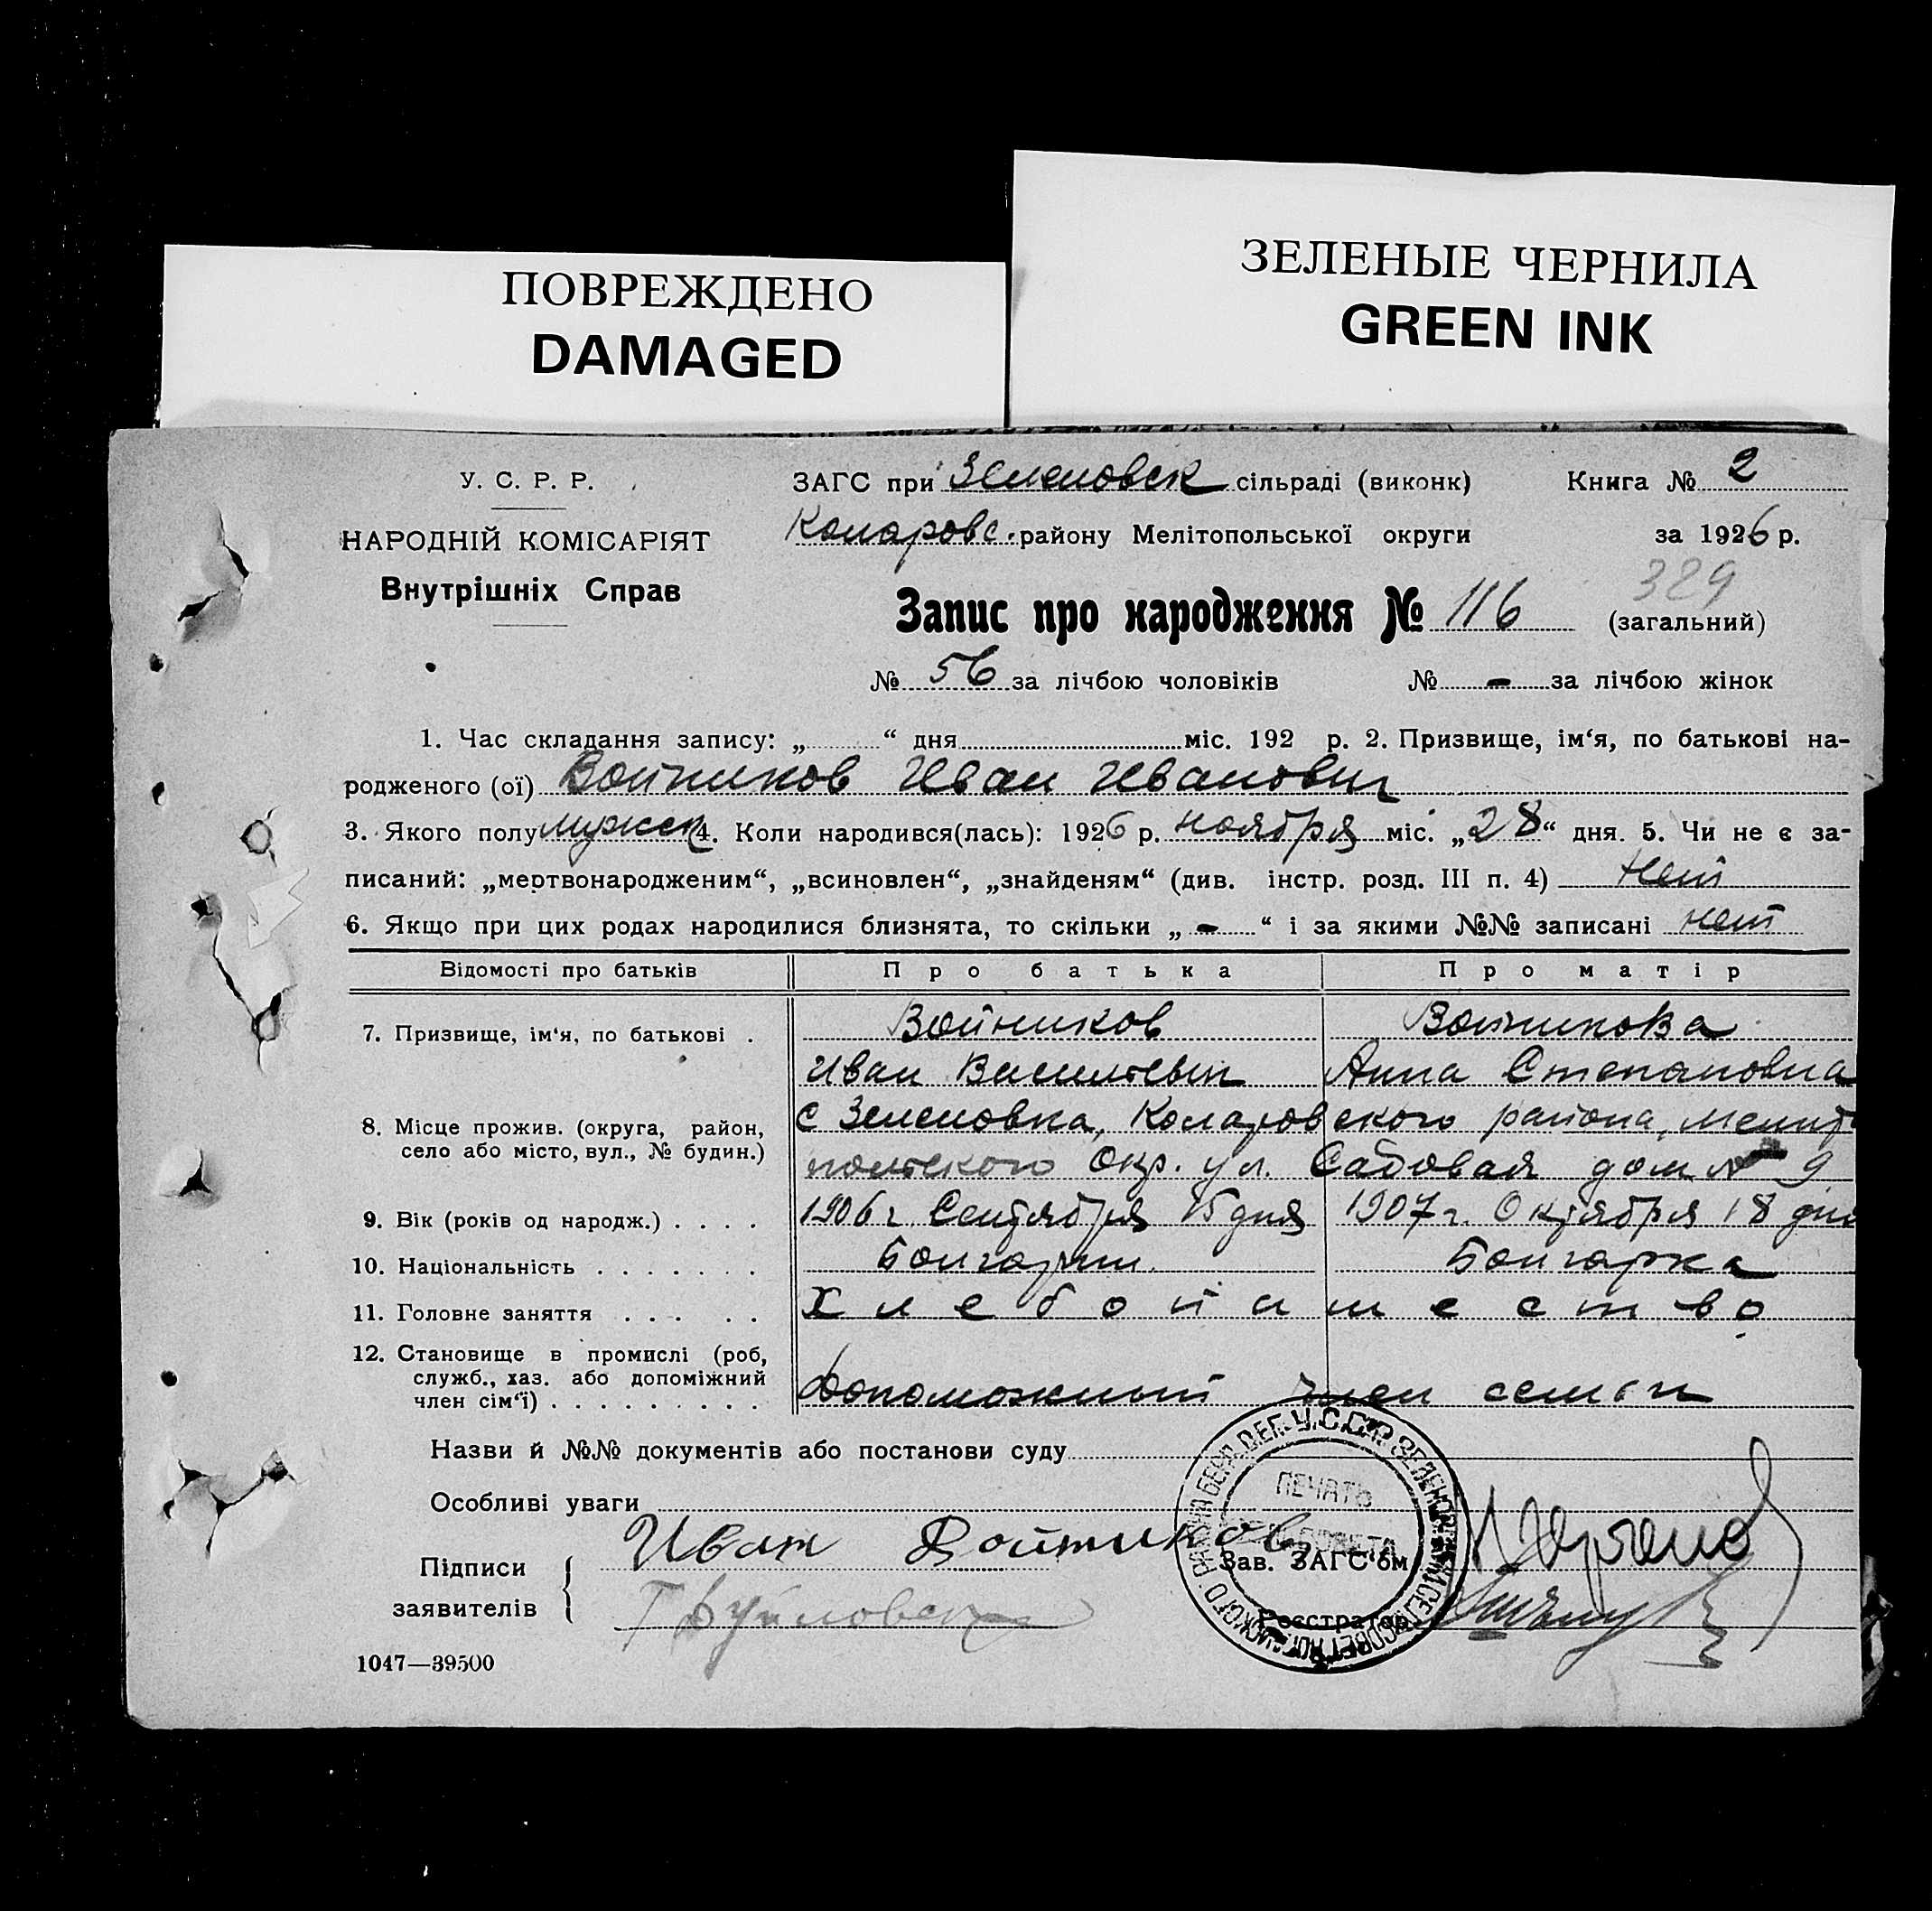 ПОВРЕЖДЕНО
DAMAGED
ЗЕЛЕНЫЕ ЧЕРНИЛА
GREEN INK
У. С. Р. Р.
НАРОДНІЙ КОМІСАРІЯТ
Внутрішніх Справ
ЗАГС при Зеленовск сільраді (виконк) Книга № 2
Коларовс. району Мелітопольської округи за 1926 р.
329
Запис про народження № 116 (загальний)
№ 56 за лічбою чоловіків № - за лічбою жінок
1. Час складання запису: „ “ дня міс. 192 р. 2. Призвище, ім‘я, по батькові на-
родженого (ої) Войников Иван Иванович
3. Якого полу мужск 4. Коли народився(лась): 1926 р. ноября міс. „28“ дня. 5. Чи не є за-
писаний: „мертвонародженим“, „всиновлен“, „знайденям“ (див. інстр. розд. III п. 4) Нет
6. Якщо при цих родах народилися близнята, то скільки „ - “ і за якими №№ записані нет
Відомості про батьків Про батька Про матір
7. Призвище, ім‘я, по батькові . Войников Войникова
Иван Васильевич Анна Степановна
8. Місце прожив. (округа, район, село або місто, вул., № будин.) с Зеленовка, Коларовского района, Мелито
польского Окр. ул. Садовая дом № 9
9. Вік (років од народж.) . . . . 1906 г. Сентября 15 дня 1907 г. Октября 18 дня
10. Національність . . . . . . . Болгарин. Болгарка
11. Головне заняття . . . . . Хлебопашество
12. Становище в промислі (роб,
служб., хаз. або допоміжний
член сім‘ї) . . . . . . . . . Допоможный член семьи
Назви й №№ документів або постанови суду
Особливі уваги
ПЕЧАТЬ
Підписи заявителів
Иван Войников
Зав. ЗАГС‘ом
Реєстратор
1047—39500